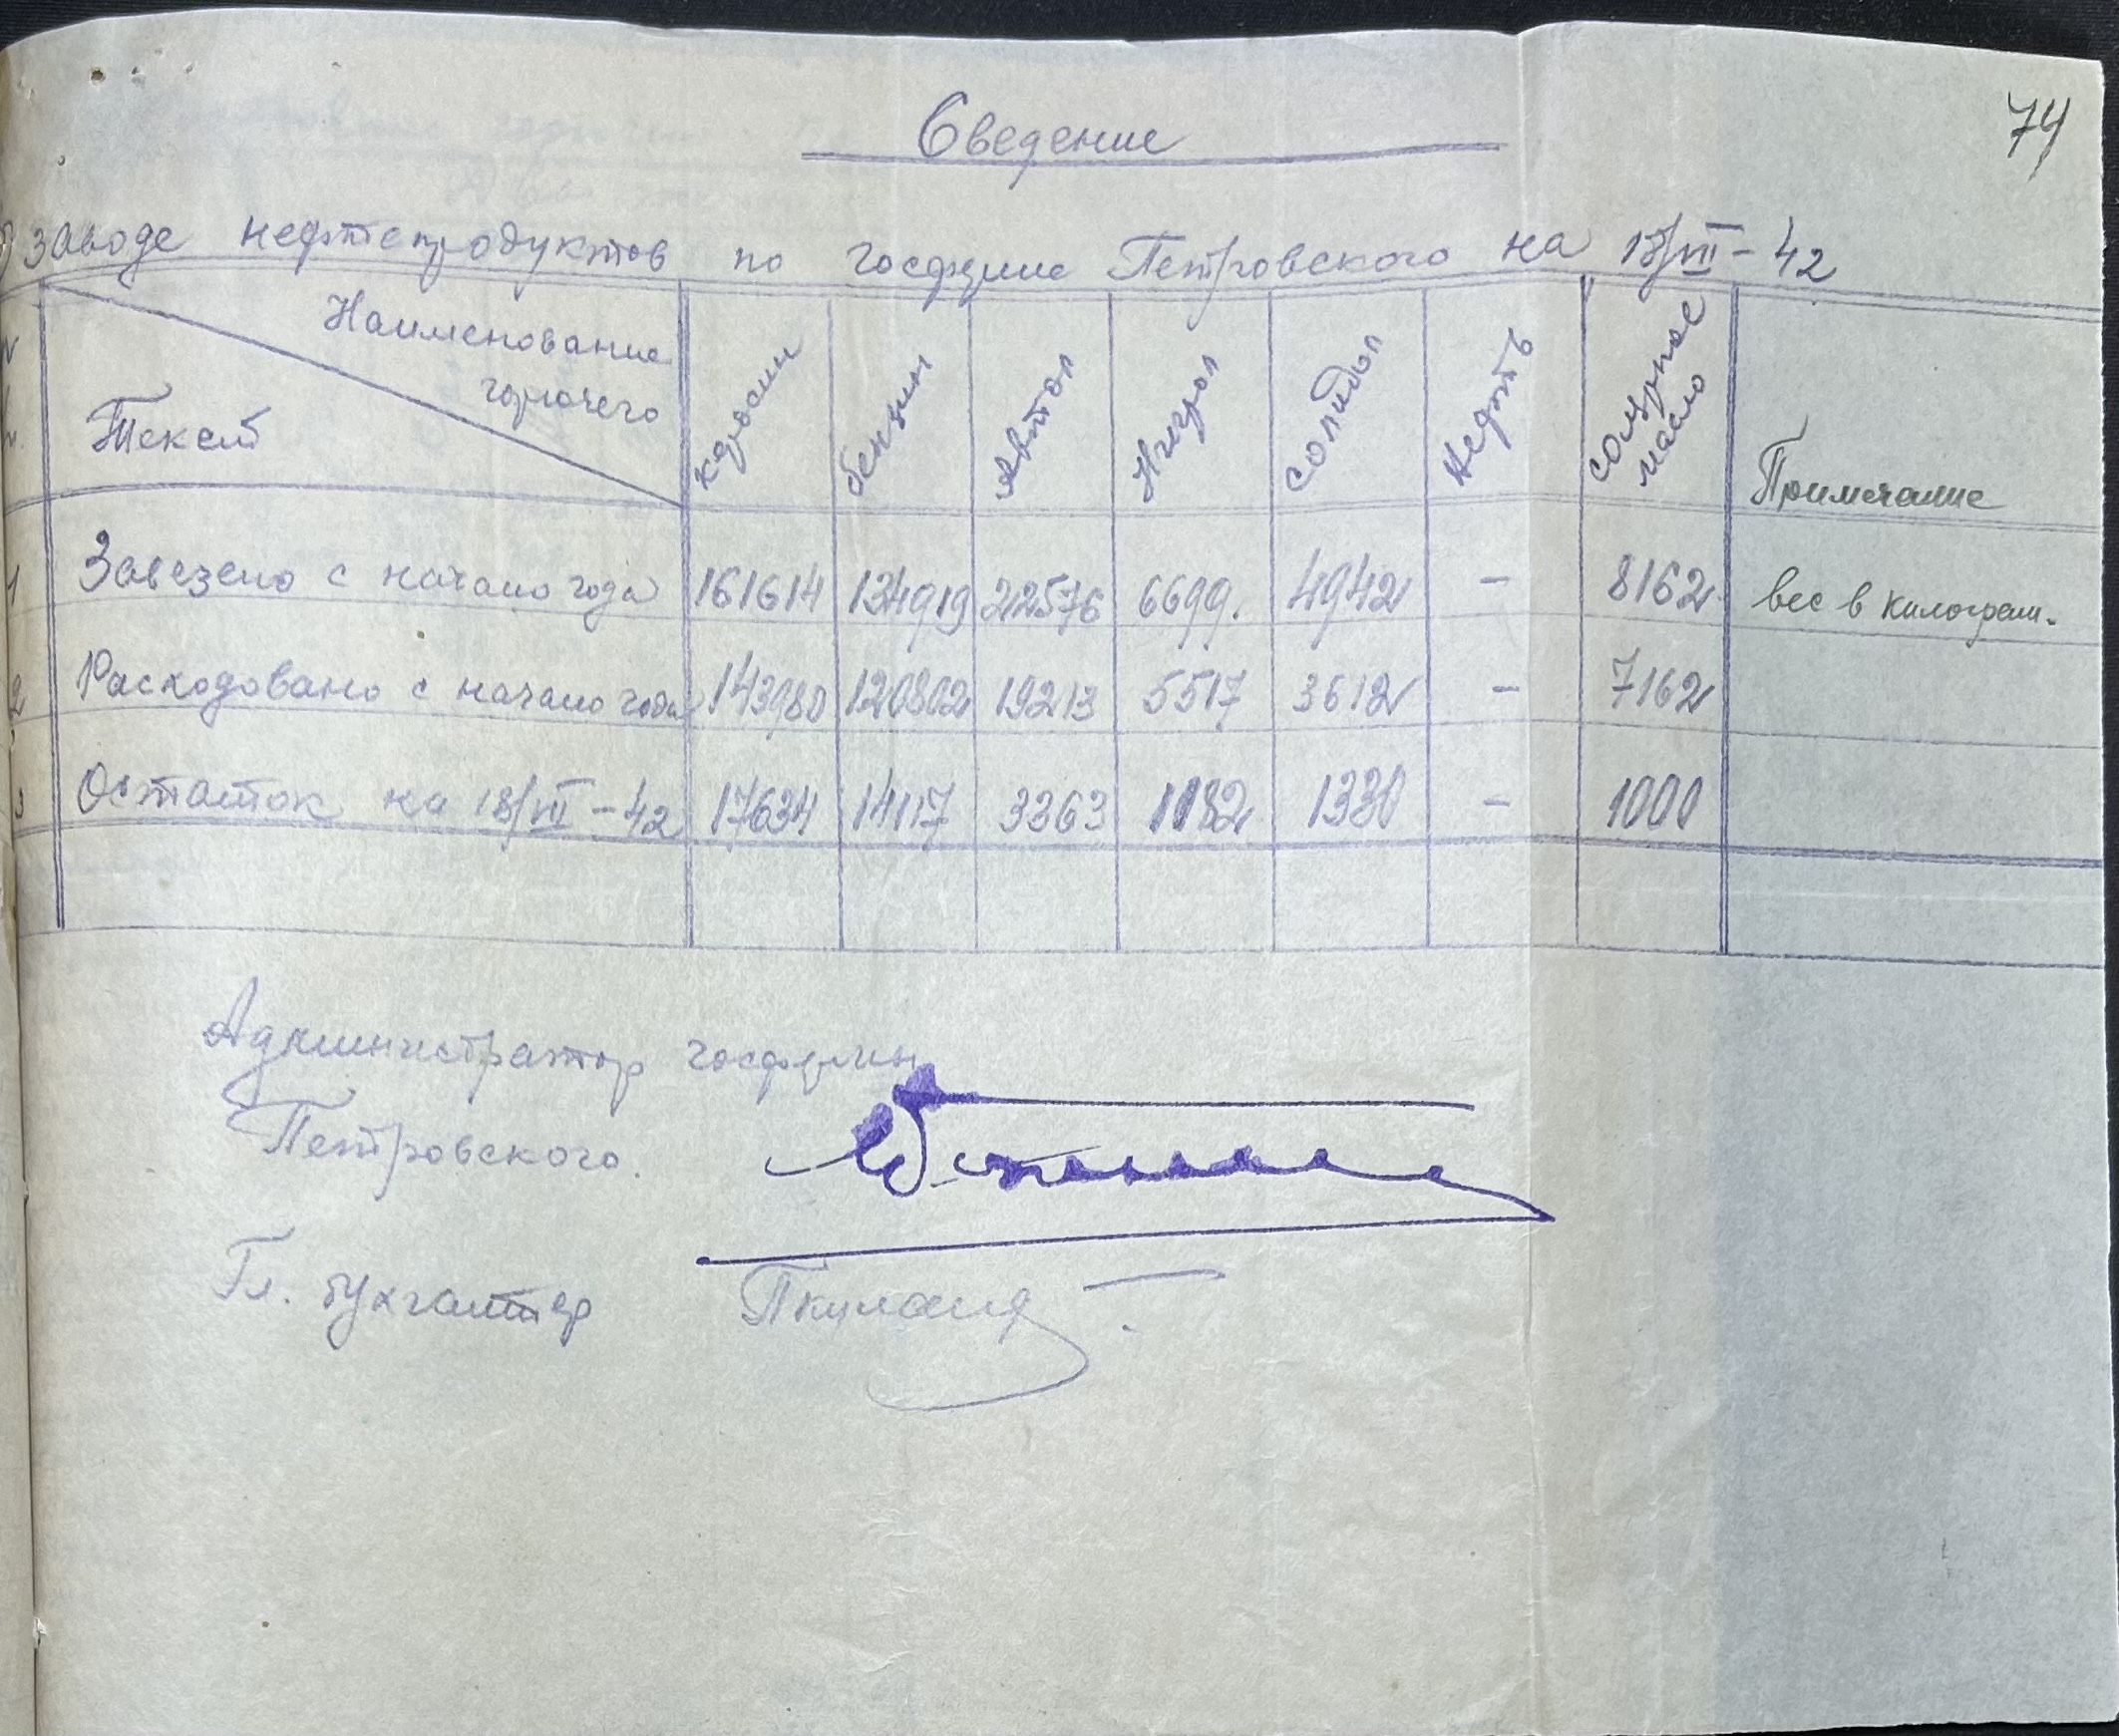 74
Сведение
О завозе нефтепродуктов по госферме Петровского на 18/VII-42
Наименование
горючего
Текст
керосин
бензин
Автол
Нигрол
Солидол
Нефть
солярное
масло
Примечание
1 Завезено с начало года 161614 134919 22576 6699. 4942 – 8162 вес в килограм.
2 Расходовано с начало года 143980 120802 19213 5517 3612 – 7162
3 Остаток на 18/VII-42 17634 14117 3363 1182 1330 – 1000
Администратор госфермы
Петровского.
Гл. бухгалтер